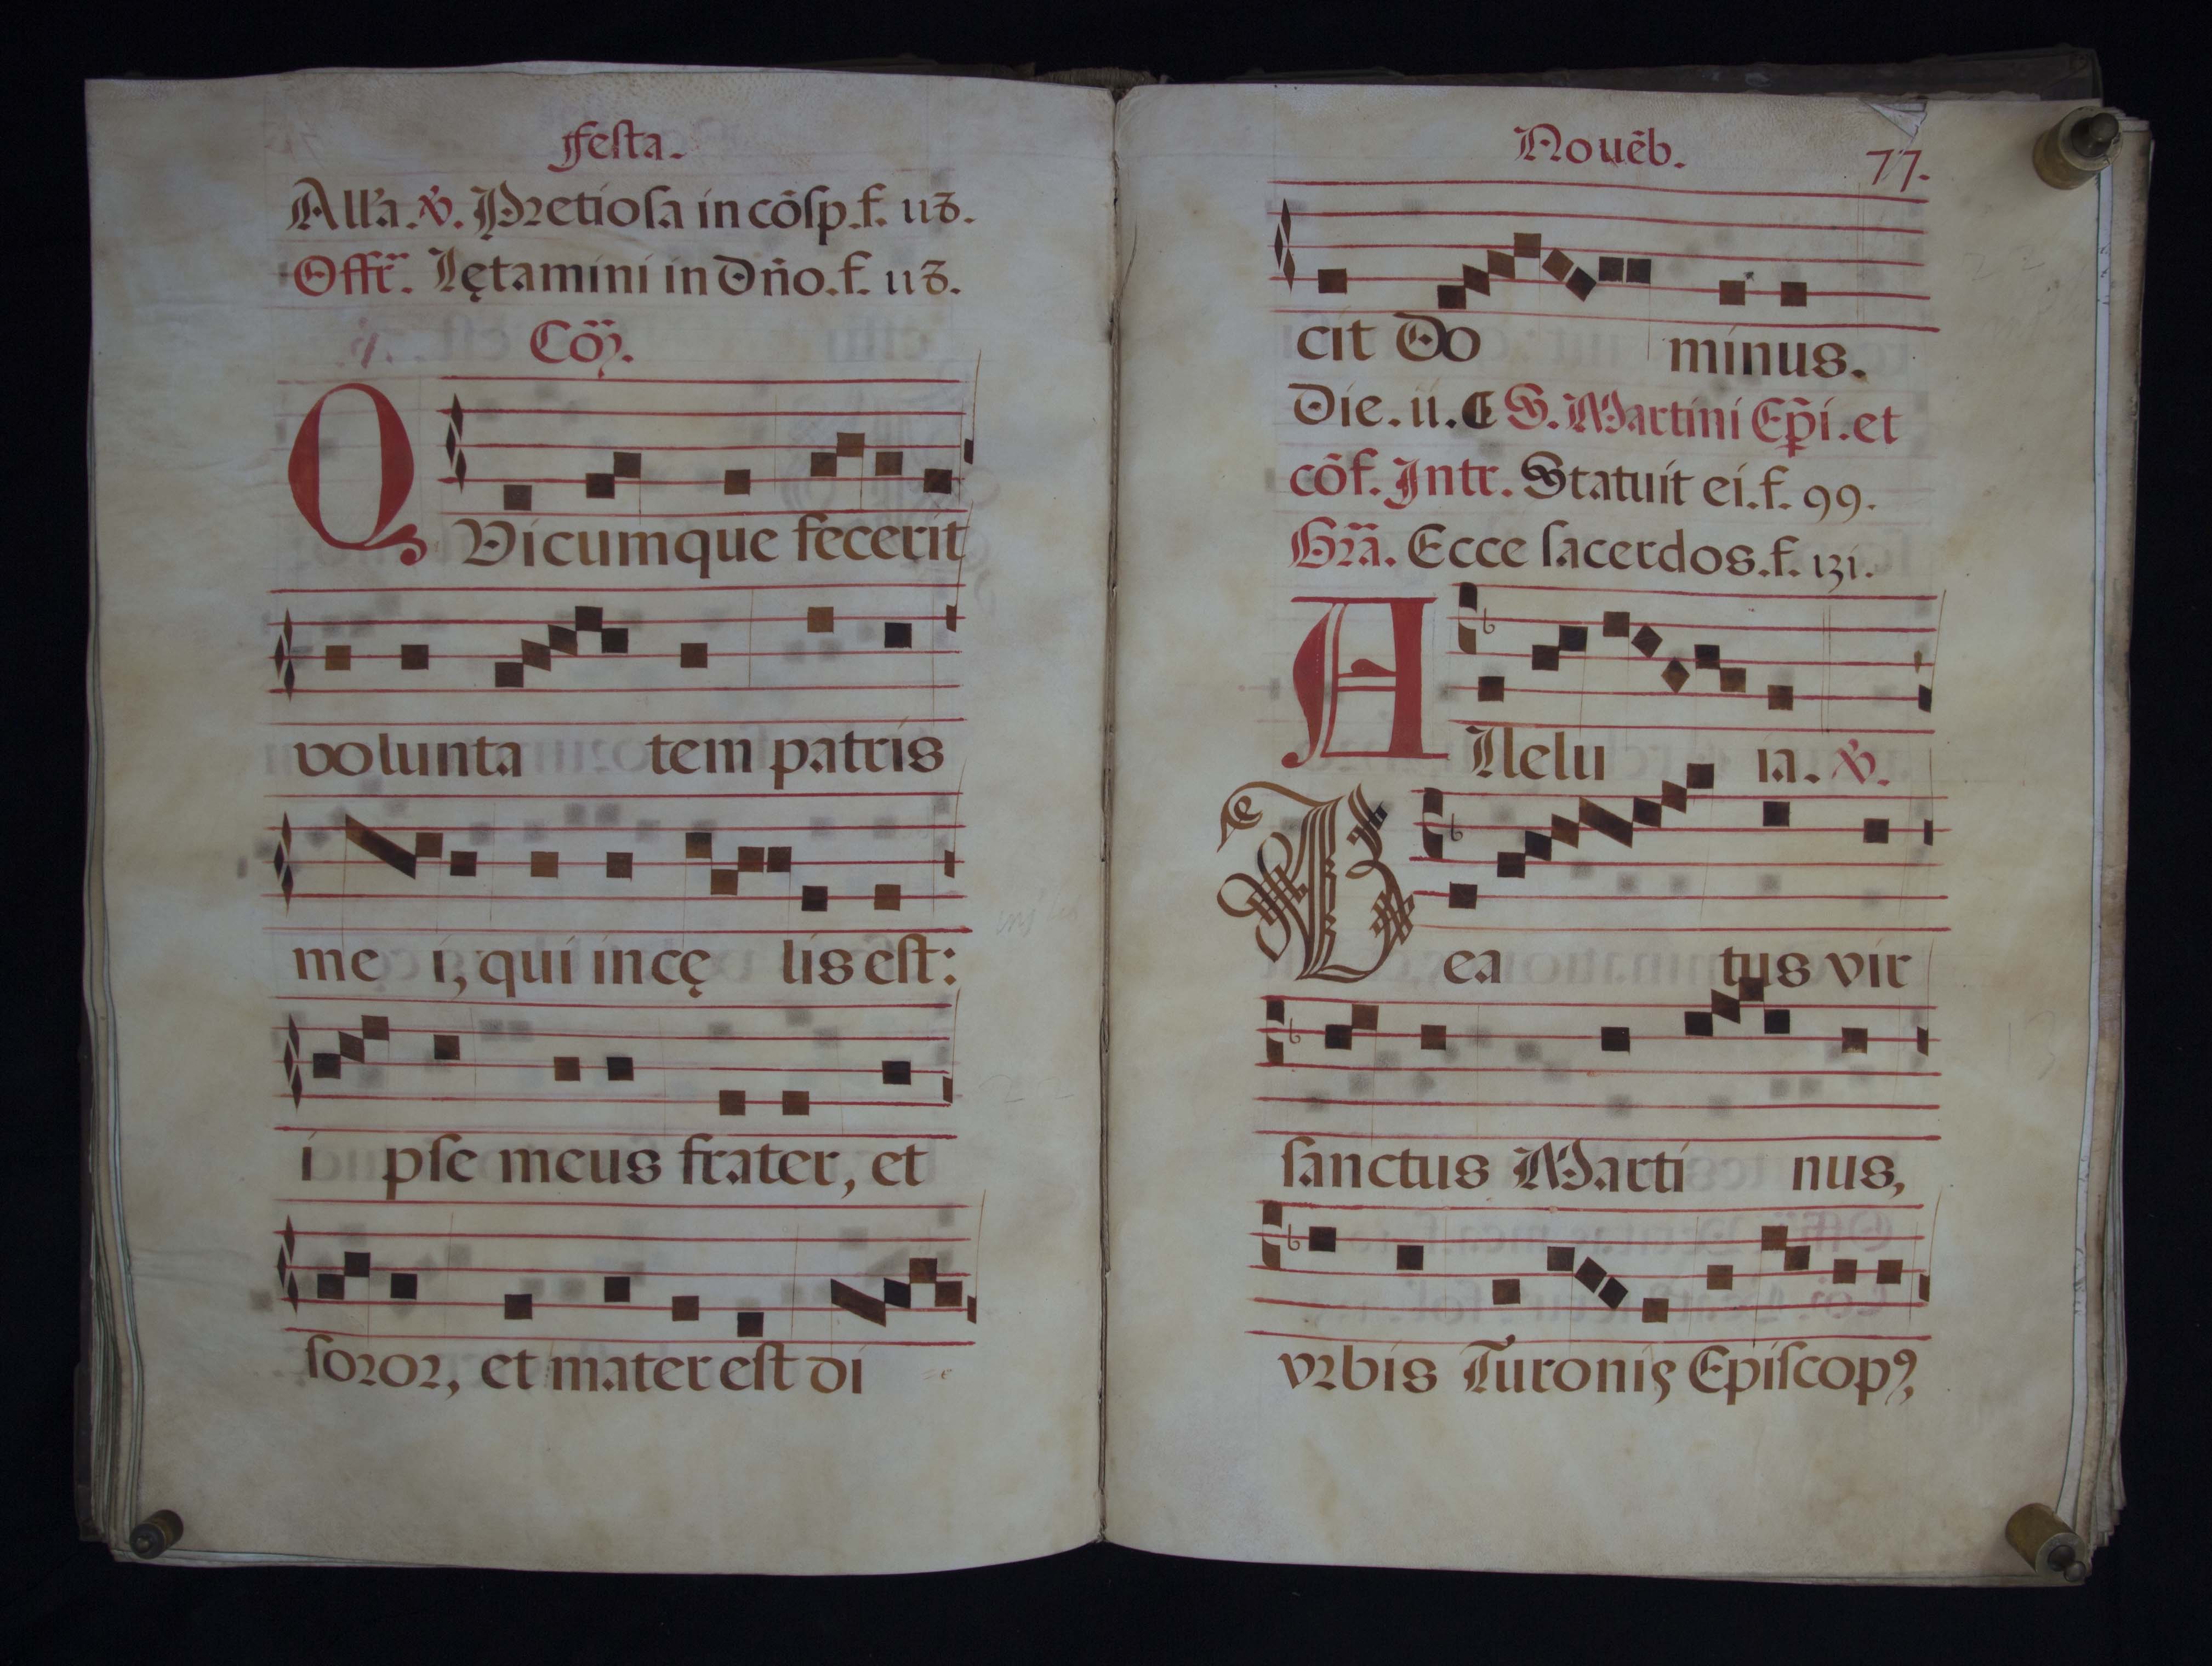 Festa.
All'a. ℣. Pretiosa in cõsp. f. 118.
Offr̃. Lętamini in Dño. f. 118.
Cõ.
QVicumque fecerit
volunta tem patris
me i, qui in cę lis est:
i pse meus frater, et
soror, et mater est di
Nouẽb. 77.
cit Do minus.
Die. ii. ¶ S. Martini Ep̃i. et
cõf. Intr. Statuit ei. f. 99.
Grã. Ecce sacerdos. f. 131.
Allelu ia. ℣.
Bea tus vir
sanctus Marti nus,
vrbis Turonis Episcopꝰ,